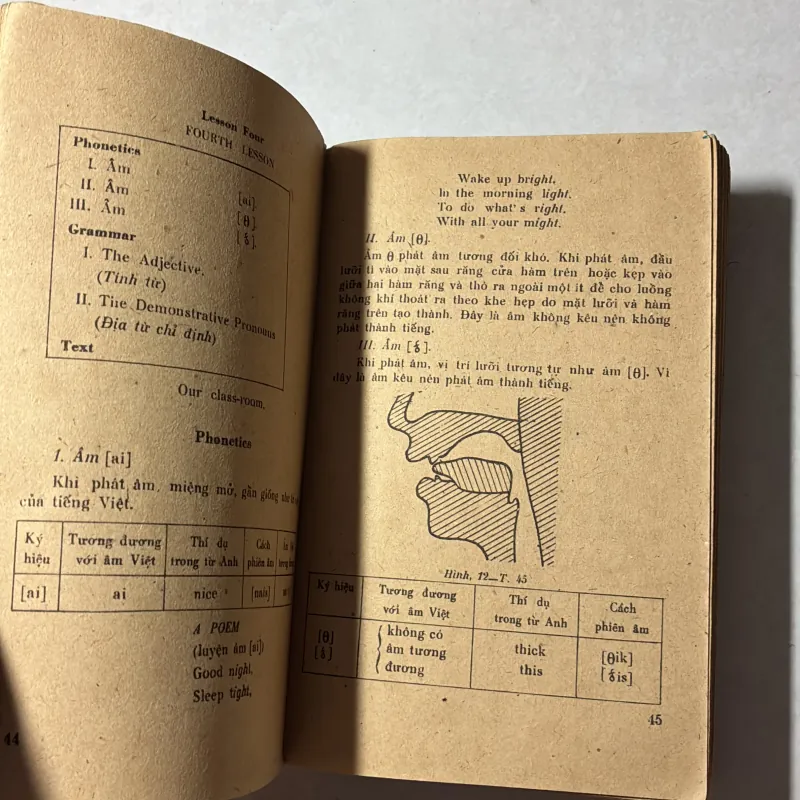 Lesson Four
FOURTH LESSON
Phonetics
I. Âm [ai]
II. Âm [θ].
III. Âm [ჭ].
Grammar
I. The Adjective.
(Tính từ)
II. The Demonstrative Pronouns
(Địa từ chỉ định)
Text
Our class-room.
Phonetics
I. Âm [ai]
Khi phát âm, miệng mở, gần giống như
của tiếng Việt.
Ký hiệu | Tương đương với âm Việt | Thí dụ trong từ Anh | Cách phiên âm
[ai] | ai | nice | [nais]
A POEM
(luyện âm [ai])
Good night,
Sleep tight,
44
Wake up bright,
In the morning light.
To do what's right.
With all your might.
II. Âm [θ].
Âm θ phát âm tương đối khó. Khi phát âm, đầu
lưỡi tì vào mặt sau răng cửa hàm trên hoặc kẹp vào
giữa hai hàm răng và thò ra ngoài một ít để cho luồng
không khí thoát ra theo khe hẹp do mặt lưỡi và hàm
răng trên tạo thành. Đây là âm không kêu nên không
phát thành tiếng.
III. Âm [ჭ].
Khi phát âm, vị trí lưỡi tương tự như âm [θ]. Vì
đây là âm kêu nên phát âm thành tiếng.
Hình, 12—T. 45
Ký hiệu | Tương đương với âm Việt | Thí dụ trong từ Anh | Cách phiên âm
[θ] | không có | thick | [θik]
[ჭ] | âm tương | this | [ჭis]
đương
45